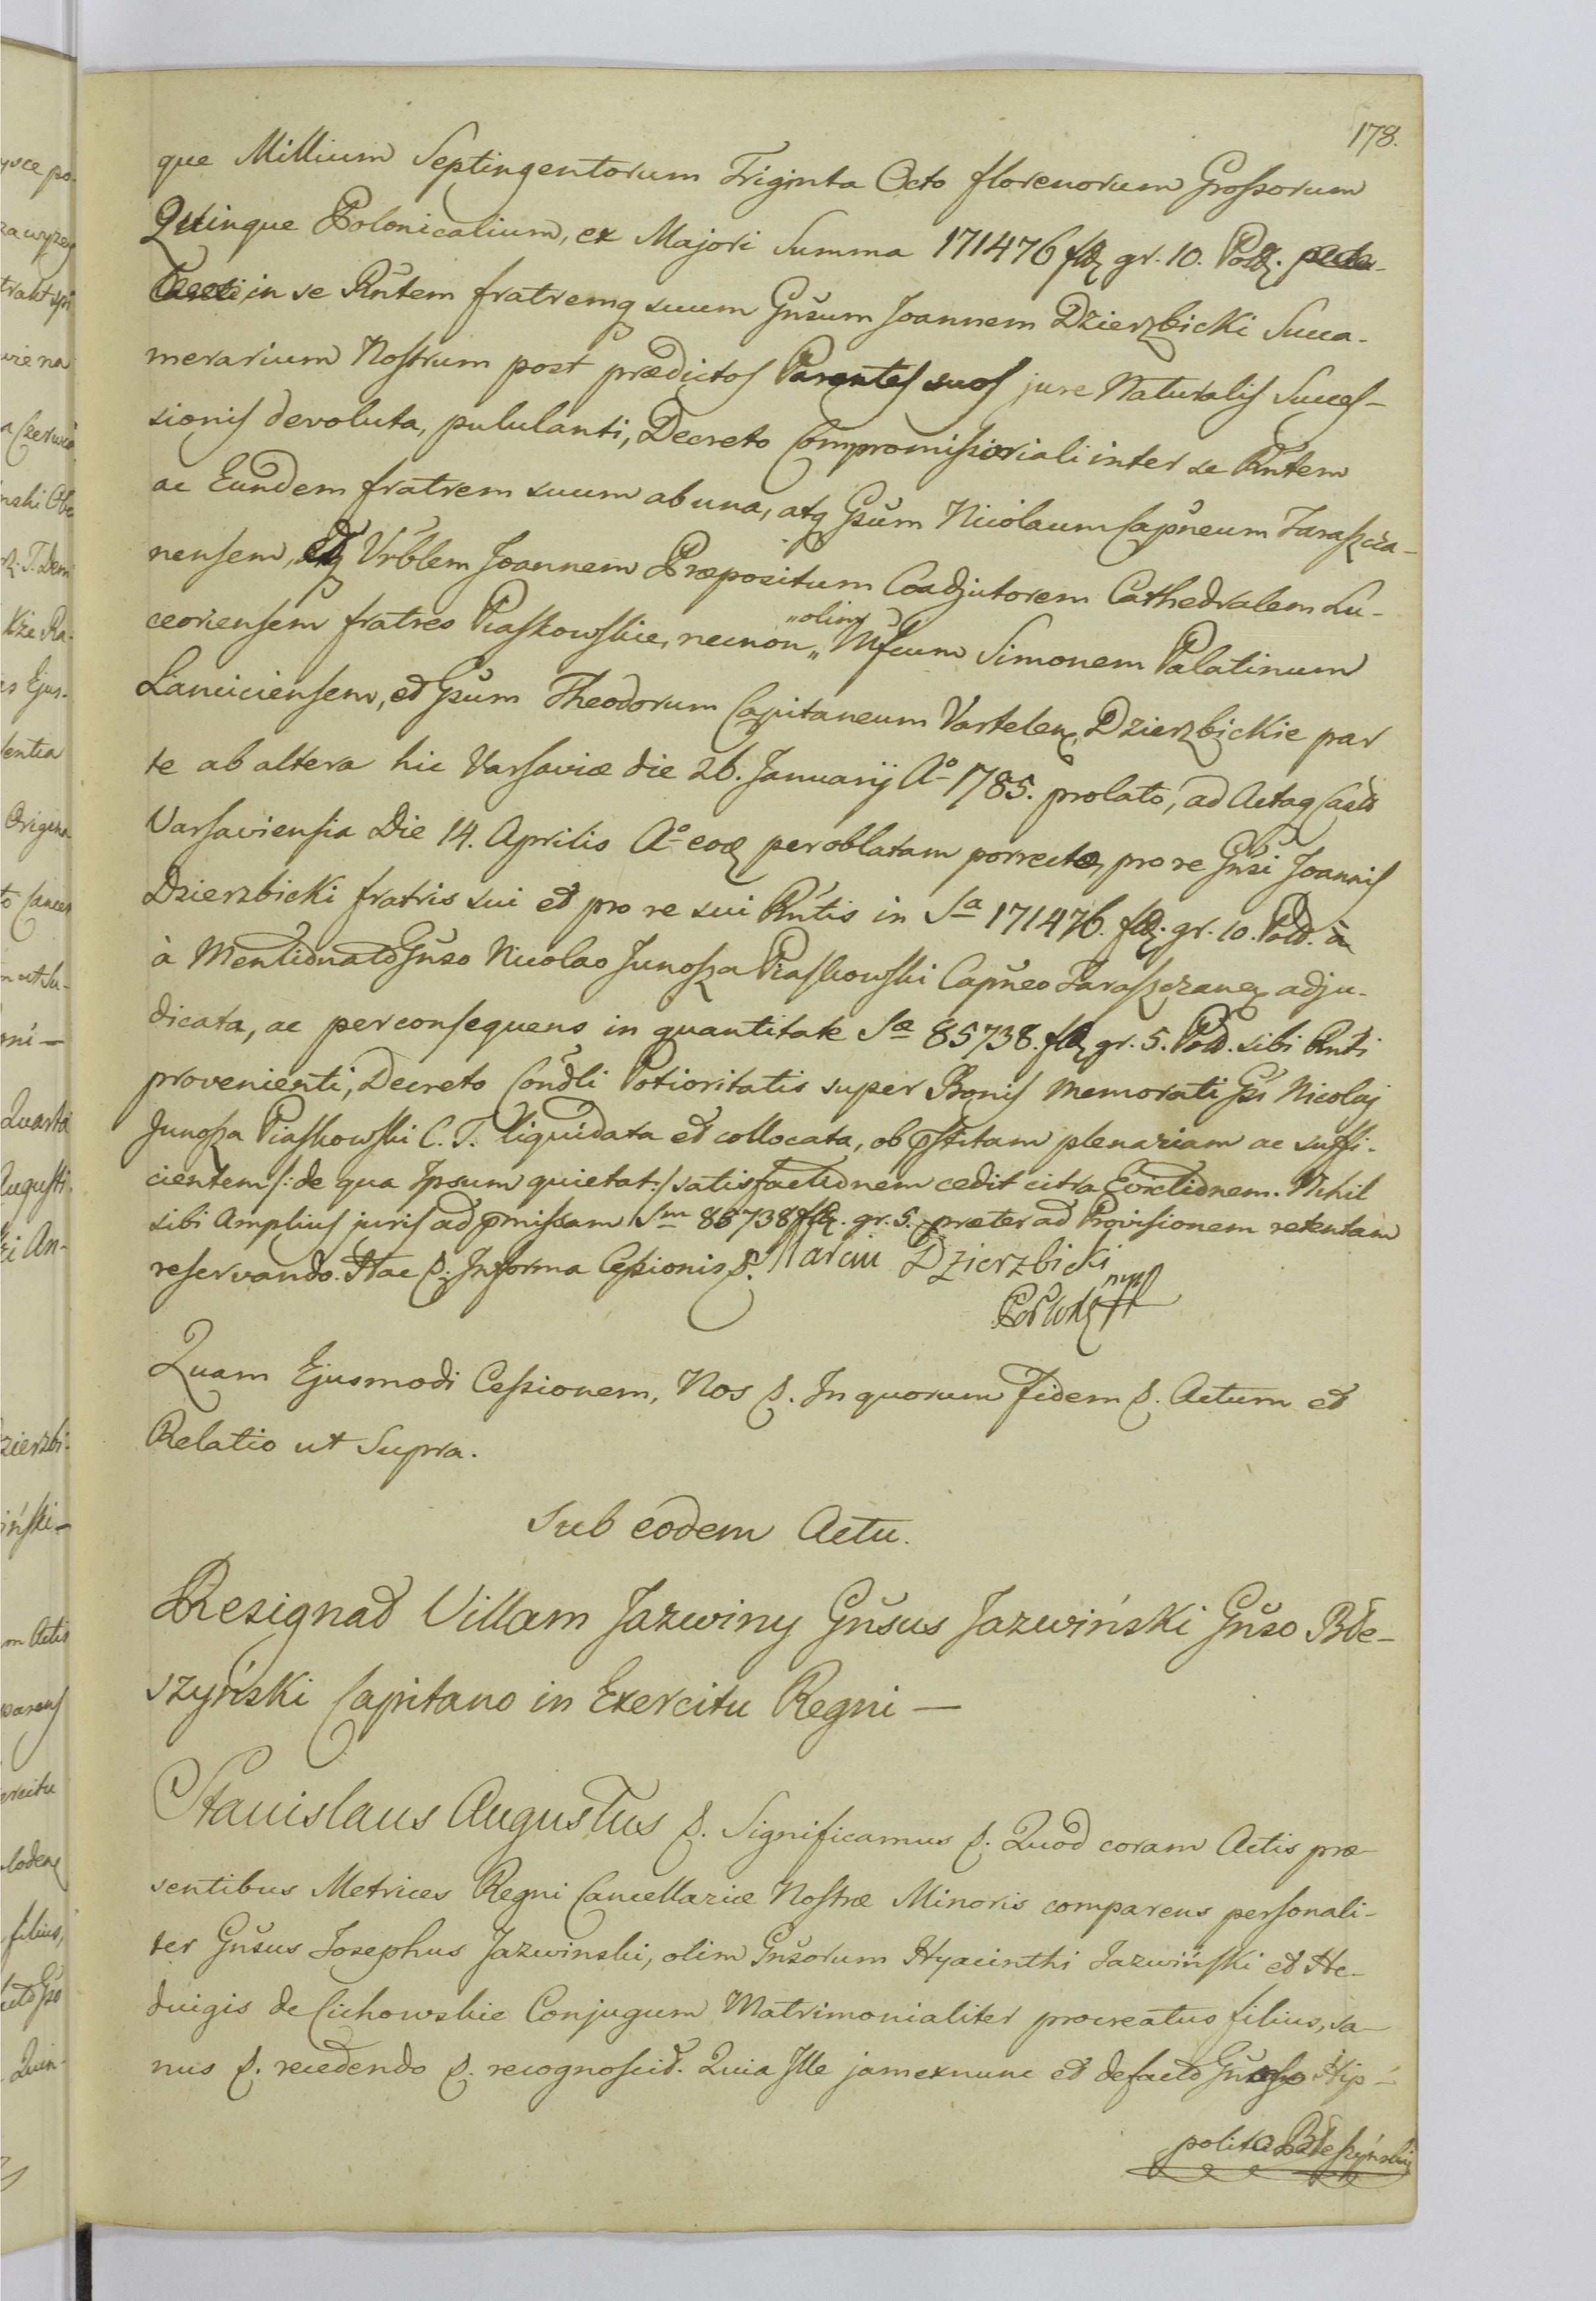 178.
que Millium Septingentorum Triginta Octo florenorum Grossorum
Quinque Polonicalium, ex Majori Summa 171476 fl. gr. 10. Pol.
in se Rntem fratremq suum Gnsum Joannem Dzierzbicki Succa-
merarium Nostrum post prædictos Parentes suos jure Naturalis Succes-
sionis devoluta, pululanti, Decreto Compromissoriali inter se Rntem
ac Eundem fratrem suum ab una, atq Gsum Nicolaum Capneum Taraszcza-
nensem, Etq Vrblem Joannem Præpositum Coadjutorem Cathedralem Lu-
ceoriensem fratres Piaskowskie, necnon „olim„ Mfcum Simonem Palatinum
Lanciciensem, et Gsum Theodorum Capitaneum Vartelen, Dzierzbickie par
te ab altera hic Varsaviæ die 26. Januarij Ao 1785. prolato, ad Actaq Castr
Varsaviensia Die 14. Aprilis Ao eod per oblatam porrecto, pro re Gnsi Joannis
Dzierzbicki fratris sui et pro re sui Rntis in Sa 171476. fl. gr. 10. Pold. à
à Mentionato Gnso Nicolao Junosza Piaskowski Capneo Taraszczanen adju-
dicata, ac per consequens in quantitate Sæ 85738. fl. gr. 5. Pold. sibi Rnti
provenienti, Decreto Condli Potioritatis super Bonis memorati Gsi Nicolaj
Junosza Piaskowski C. T. liquidata et collocata, ob pstitam plenariam ac suffi-
cientem /: de qua Ipsum quietat :/ satisfactionem cedit citra Evictionem. Nihil
sibi Amplius juris ad pmissam Sm 85738 fl. gr. 5. præter ad Provisionem retentam
reservando. Hac p. In forma Cessionis p. Marcin Dzierzbicki
mp
Quam Ejusmodi Cessionem, Nos p. In quorum Fidem p. Actum et
Relatio ut Supra.
Sub eodem Actu.
Resignat Villam Jazwiny Gnsus Jazwiński Gnso Błe-
szyński Capitano in Exercitu Regni —
Stanislaus Augustus p. Significamus p. Quod coram Actis præ-
sentibus Metrices Regni Cancellariæ Nostræ Minoris comparens personali-
ter Gnsus Josephus Jazwinski, olim Gnsorum Hyacinthi Jazwiński et He-
dvigis de Cichowskie Conjugum Matrimonialiter procreatus filius, sa-
nus p. recedendo p. recognoscit. Quia Ille jam ex nunc et de facto Gnoso Hip-
polito Błeszyński